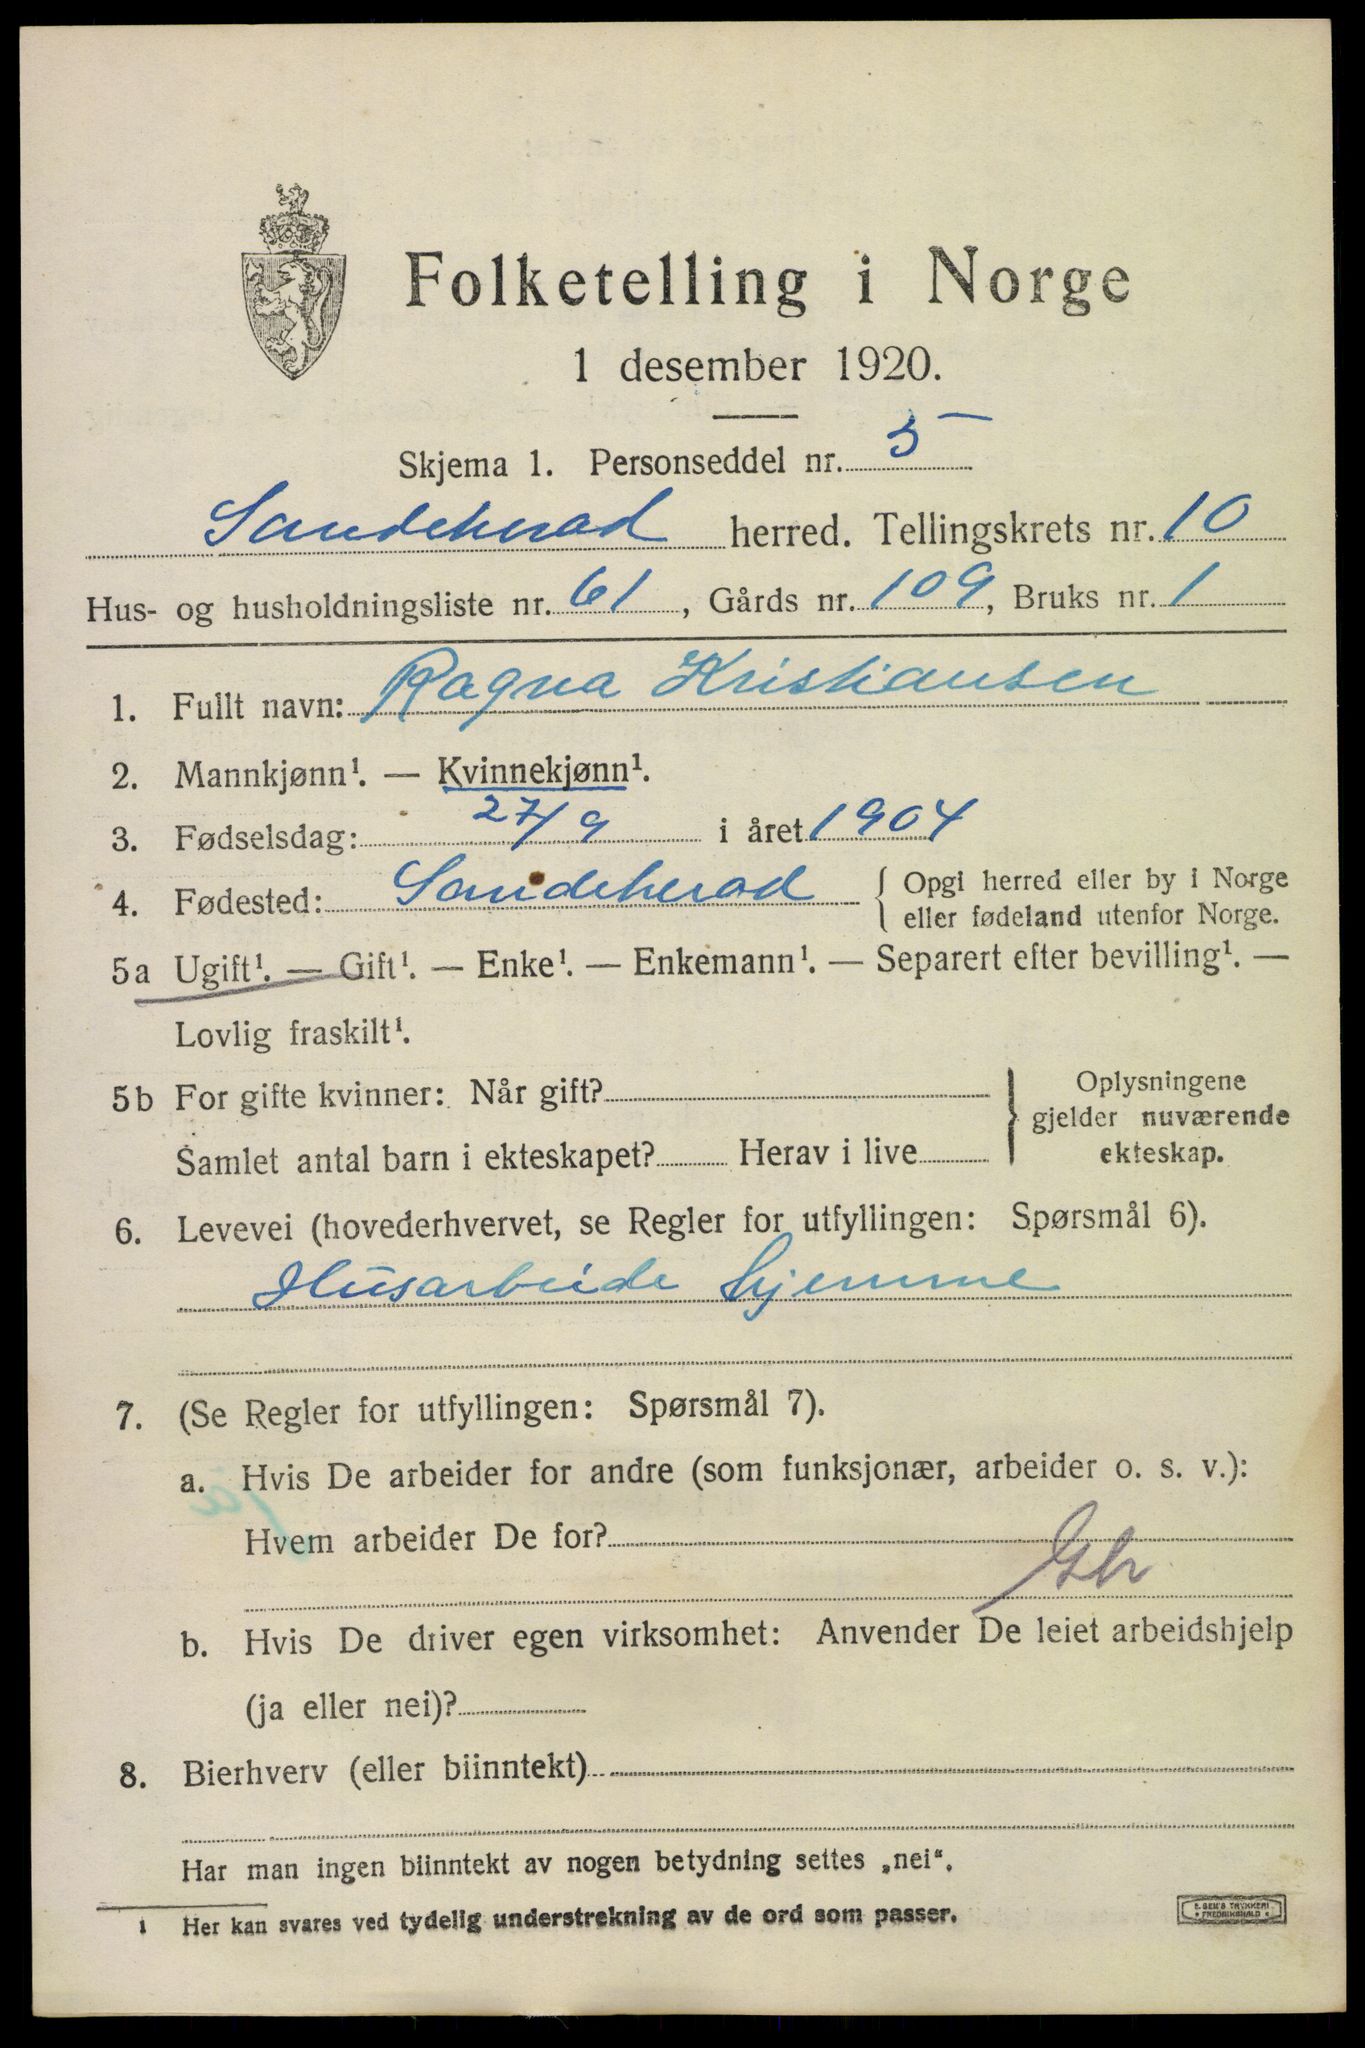 Folketelling i Norge
1 desember 1920.
Skjema 1. Personseddel nr. 5
Sandeherad herred. Tellingskrets nr. 10
Hus- og husholdningsliste nr. 61, Gårds nr. 109, Bruks nr. 1
1. Fullt navn: Ragna Kristiansen
2. Mannkjønn¹. — Kvinnekjønn¹.
3. Fødselsdag: 27/9 i året 1904
4. Fødested: Sandeherad { Opgi herred eller by i Norge
eller fødeland utenfor Norge.
5a Ugift¹. — Gift¹. — Enke¹. — Enkemann¹. — Separert efter bevilling¹. —
Lovlig fraskilt¹.
5b For gifte kvinner: Når gift?
Samlet antal barn i ekteskapet? Herav i live
} Oplysningene
gjelder nuværende
ekteskap.
6. Levevei (hovederhvervet, se Regler for utfyllingen: Spørsmål 6).
Husarbeide hjemme
7. (Se Regler for utfyllingen: Spørsmål 7).
a. Hvis De arbeider for andre (som funksjonær, arbeider o. s. v.):
Hvem arbeider De for?
b. Hvis De driver egen virksomhet: Anvender De leiet arbeidshjelp
(ja eller nei)?
8. Bierhverv (eller biinntekt)
Har man ingen biinntekt av nogen betydning settes „nei“.
1 Her kan svares ved tydelig understrekning av de ord som passer.
E. SEM'S TRYKKERI
FREDRIKSHALD